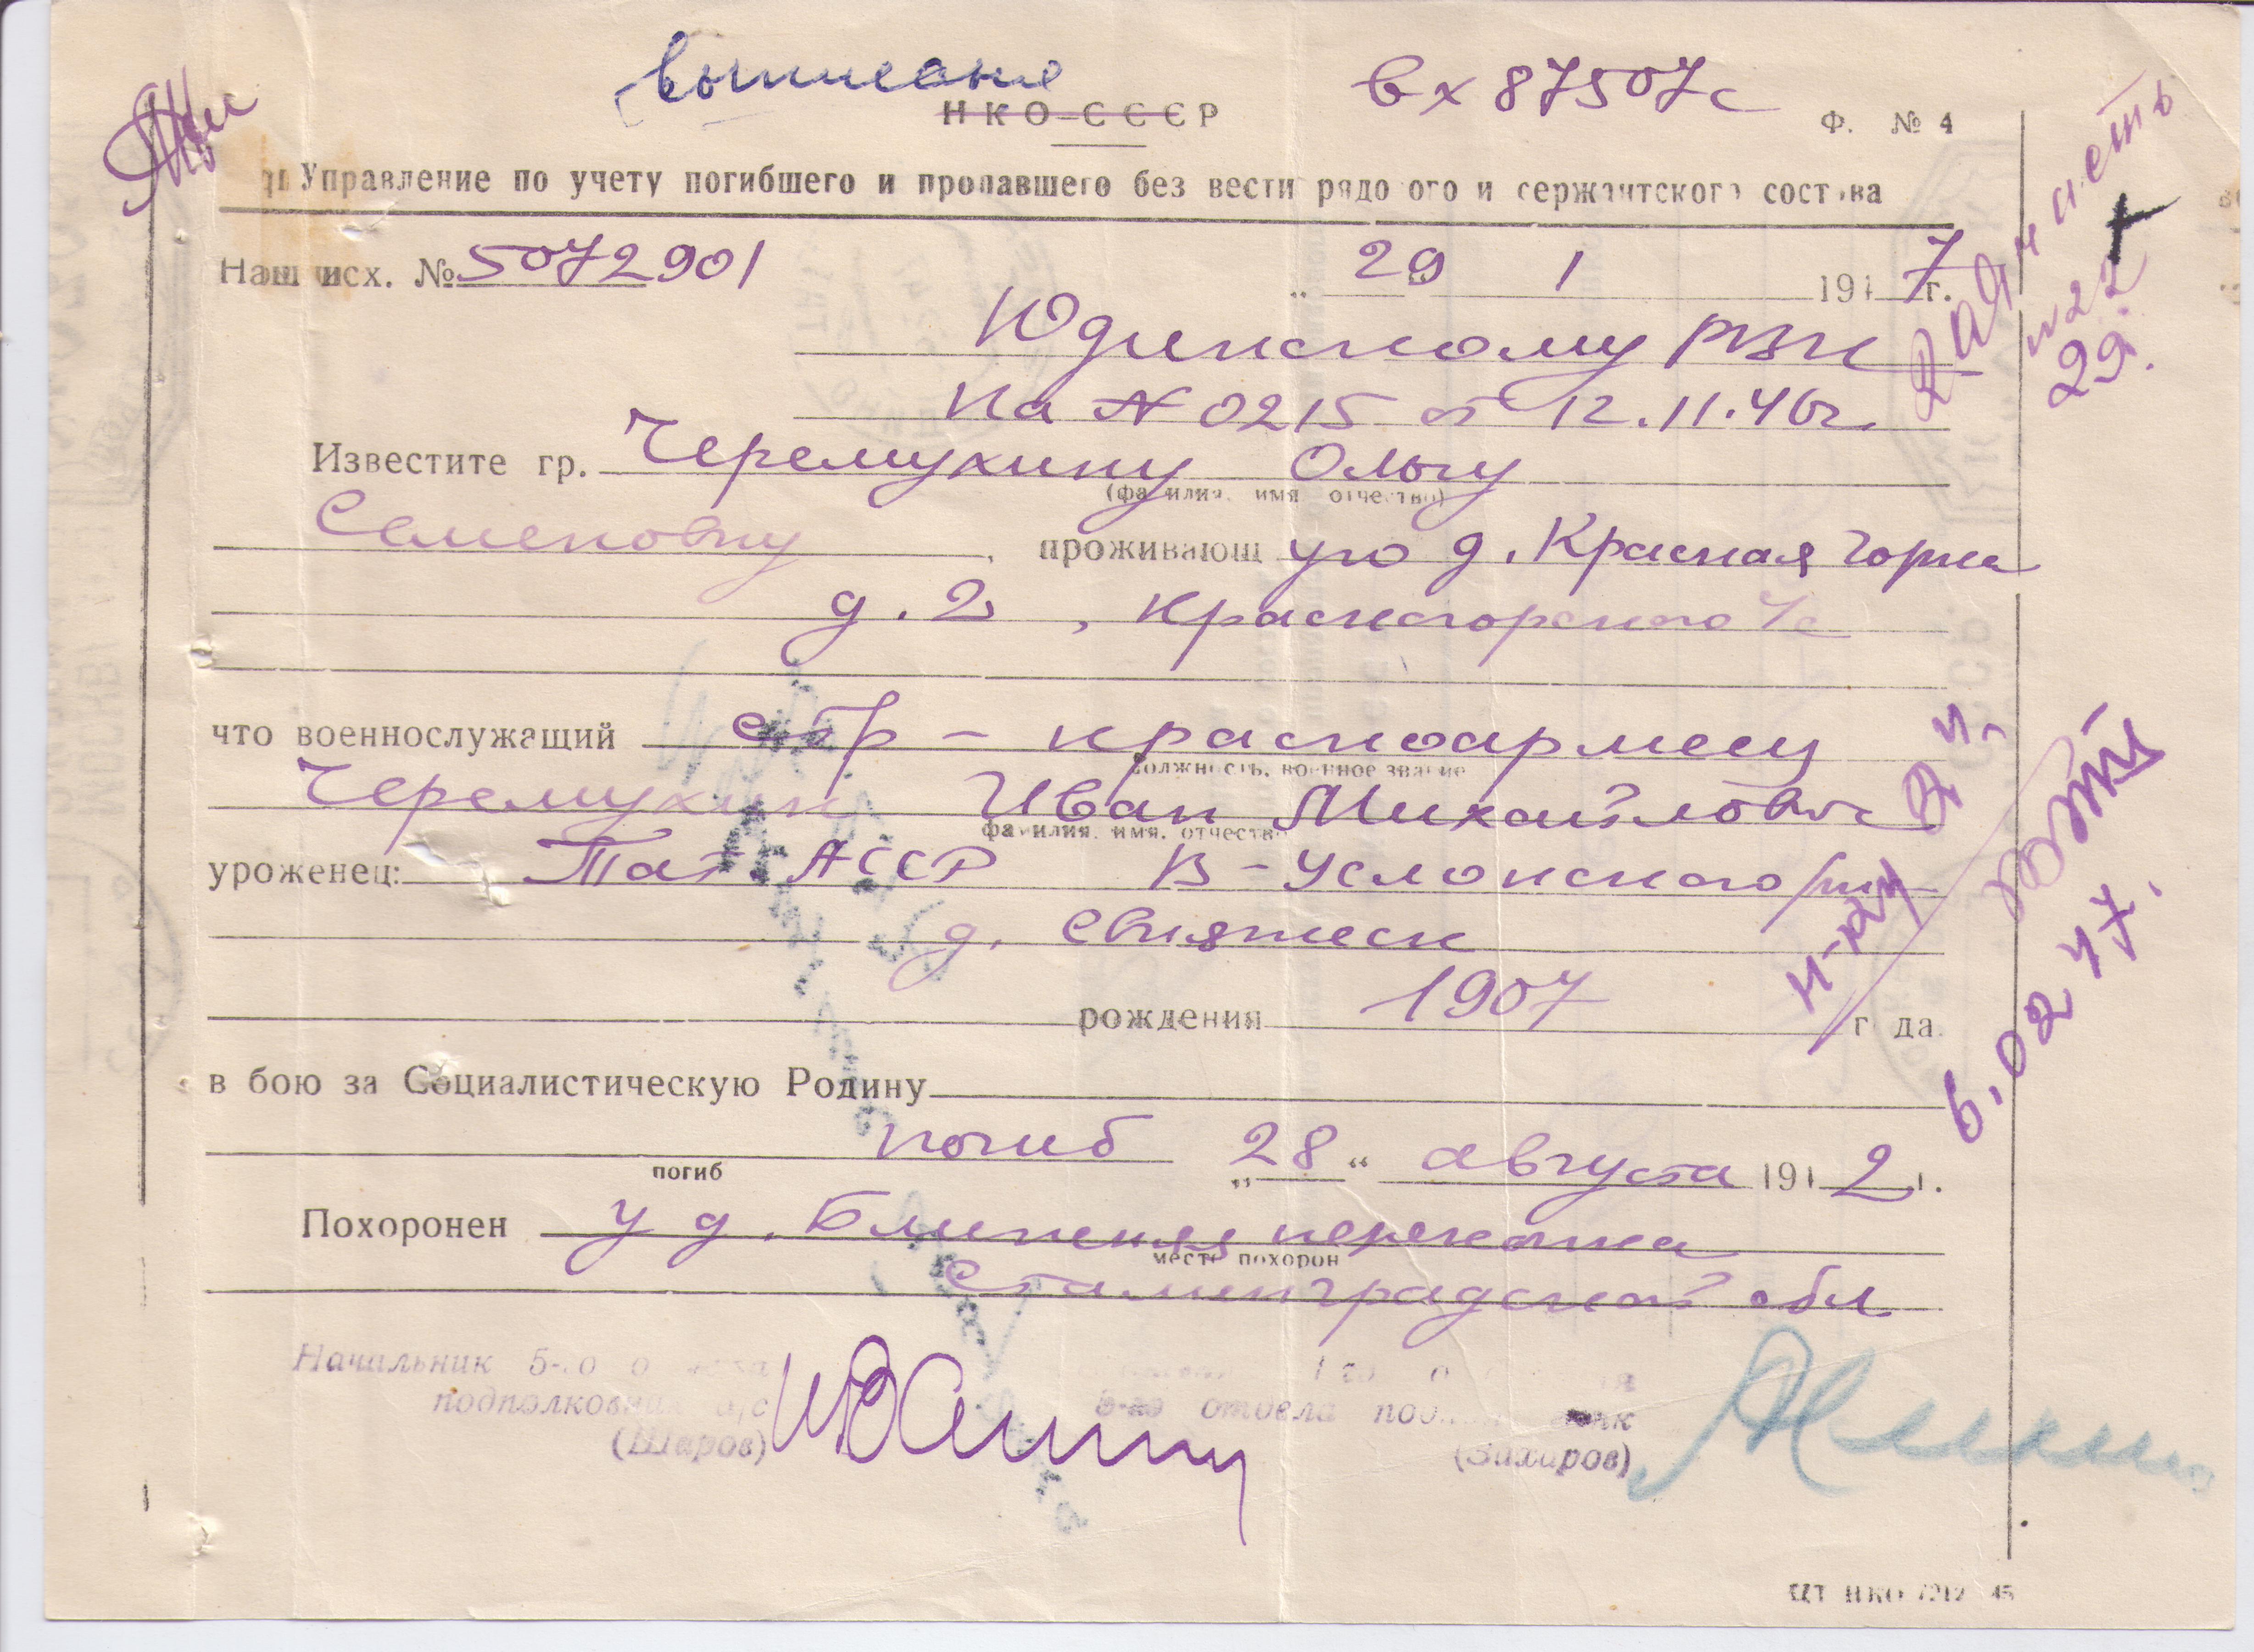 выписано
вх 87507с
НКО СССР
Ф. № 4
Управление по учету погибшего и пропавшего без вести рядового и сержантского состава
Наш исх. № 5072901
„29" 1 1947 г.
Юдинскому РВК
На № 0215 от 12.11.46г.
Известите гр. Черемухину Ольгу
(фамилия, имя отчество)
Семеновну, проживающ ую д. Красная Горка
д. 2, Красногорского с/с
что военнослужащий стр - красноармеец
должность, военное звание
Черемухин Иван Михайлович
фамилия, имя, отчество
уроженец: Тат АССР В-Услонского р-н
д. Свияжск
рождения 1907 года
в бою за Социалистическую Родину
погиб „28" августа 1942 г.
погиб
Похоронен у д. Ближняя перекопка
место похорон
Сталинградской обл
Начальник 5-го отдела
подполковник а/с
(Шаров)
5-го отдела подполковник
(Захаров)
н-ку 2 ч.
6.02.47.
№ 22
29.
ЦТ НКО 7212 45